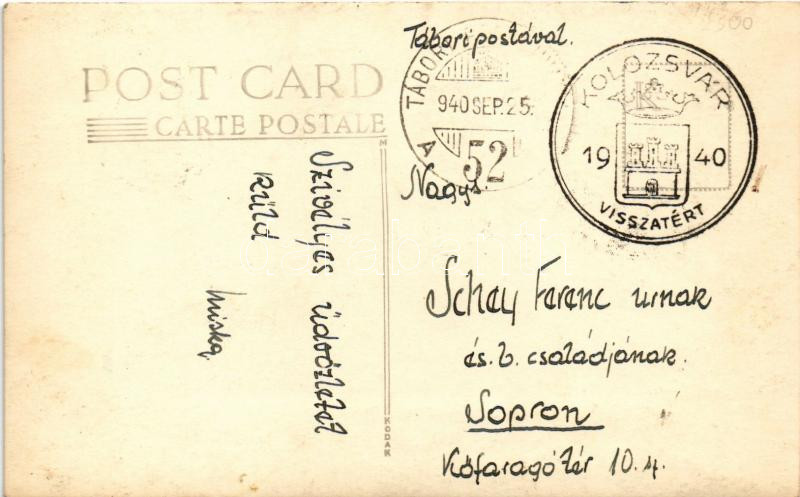 POST CARD
CARTE POSTALE
Tábori postával.
TÁBOR
940 SEP. 25.
A
52
KOLOZSVÁR
19 40
VISSZATÉRT
Szivélyes üdvözletet
küld
Miska
KODAK
Nagys.
Schey Ferenc urnak
és b. családjának.
Sopron
Kőfaragó tér 10.